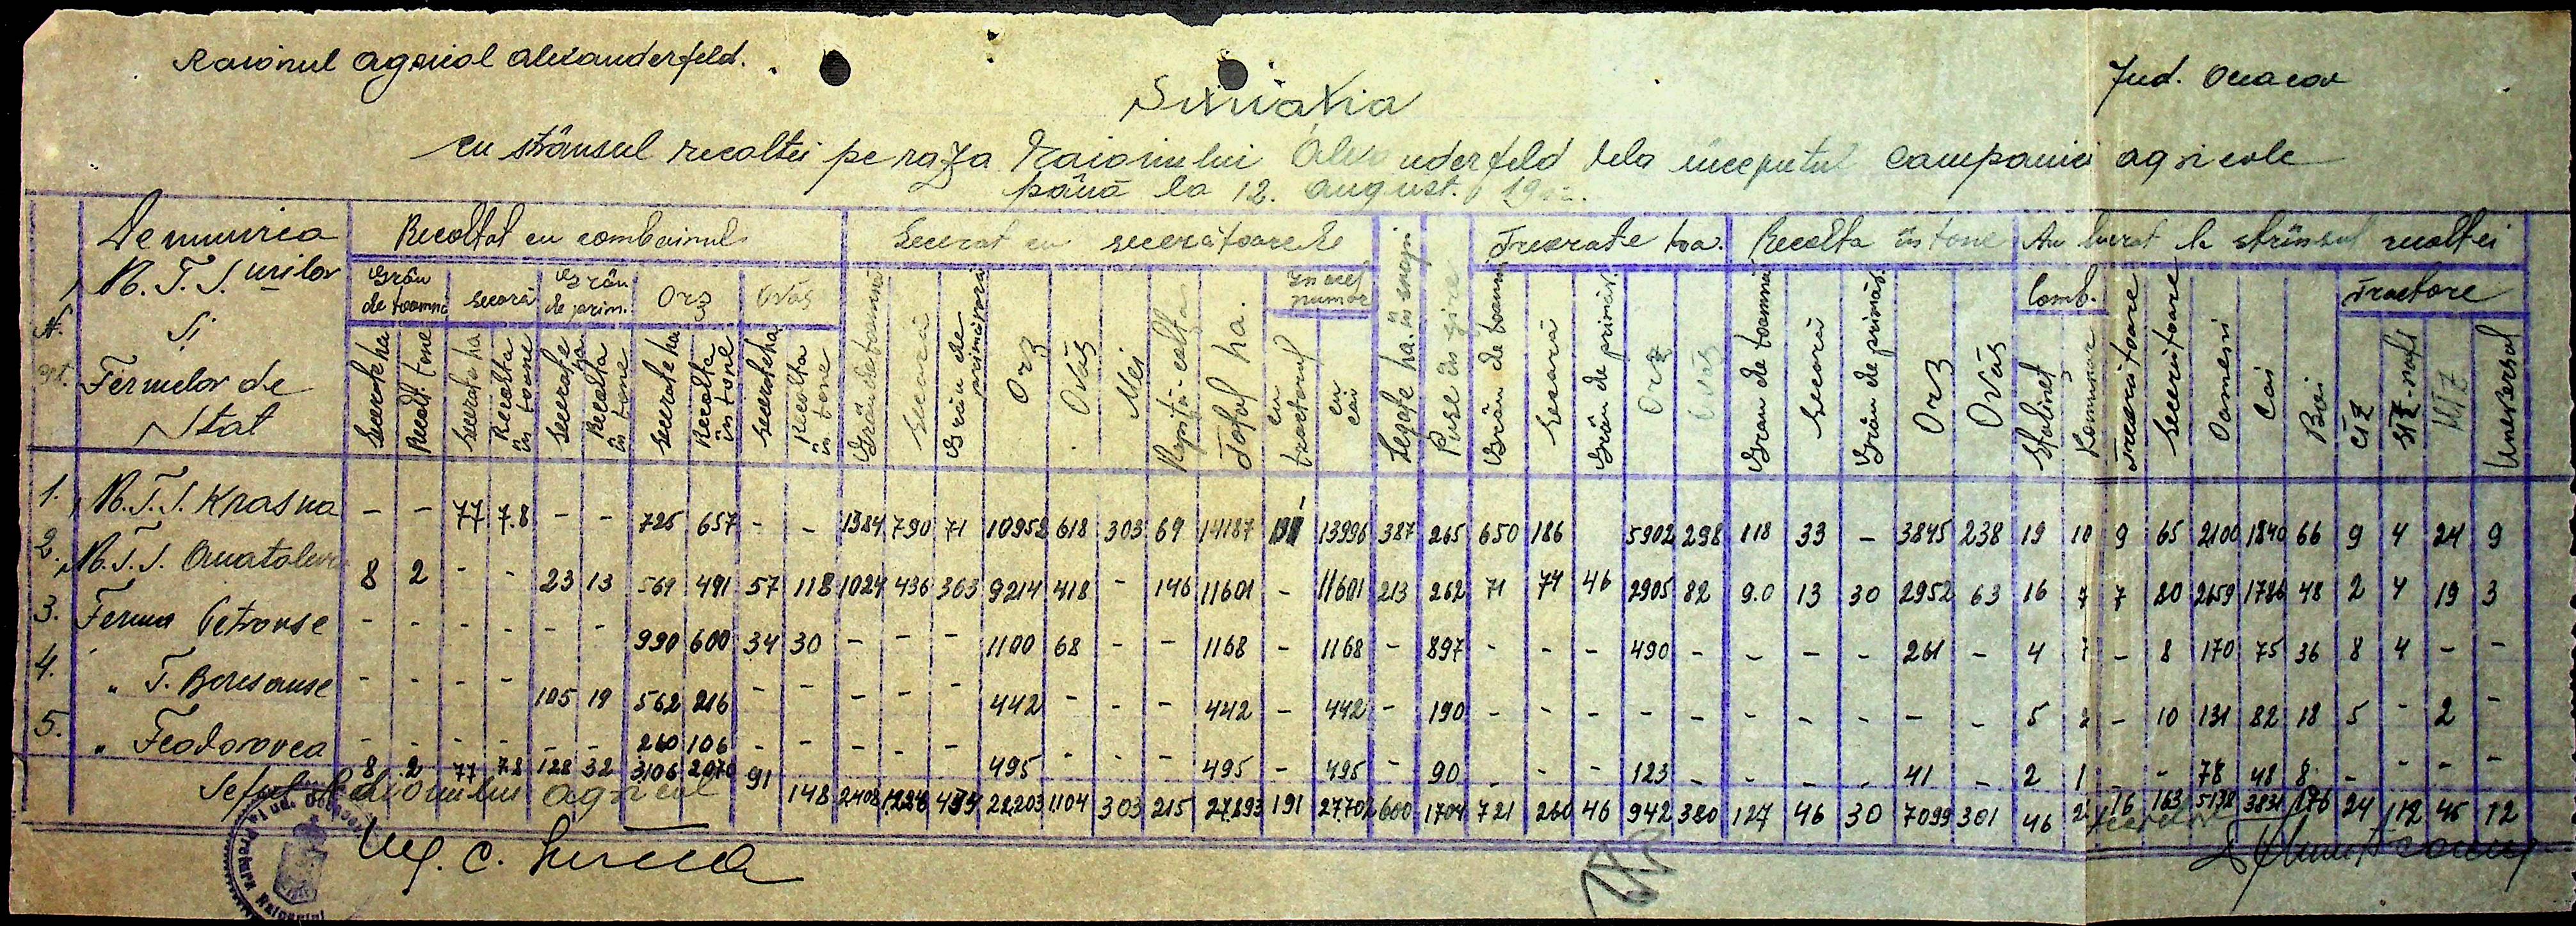 Raionul agricol Alexanderfeld.
Jud. Oceacov
Situația
cu strânsul recoltei pe raza Raionului Alexanderfeld dela începutul campaniei agricole
până la 12. august. 19
N. crt. Denumirea M.T.S. urilor și Fermelor de Stat
Recoltat cu combainul
Secerat cu secerătoarele
Legate ha. în snopi
Puse în șire
Treerate ha.
Recolta în tone
Au lucrat la strânsul recoltei
Grâu de toamnă
secară
Grâu de prim.
Orz
Ovăs
În acest număr
Comb.
Tractore
Secerate ha Recolt. tone Secerate ha Recolta în tone Secerate ha Recolta în tone Secerate ha Recolta în tone Secerate ha Recolta în tone
Grâu de toamnă Secară Grâu de primăvară Orz Ovăs Mei Rapiță-colța Total ha. cu tractorul cu cai
Grâu de toamnă Secară Grâu de primăv. Orz Ovăs
Grâu de toamnă Secară Grâu de primăv. Orz Ovăs
Stalineț Comunar Treerătoare Secerătoare Oameni Cai Boi
ciz stz-nati Universal
1. M.T.S. Krasna - - 77 7.8 - - 725 657 - - 1384 790 71 10952 618 303 69 14187 191 13996 387 265 650 186 5902 298 118 33 - 3845 238 19 10 9 65 2100 1840 66 9 4 24 9
2. M.T.S. 8 2 - - 23 13 569 491 57 118 1024 436 363 9214 418 - 146 11601 - 11601 213 262 71 74 46 2905 82 9.0 13 30 2952 63 16 7 7 80 2659 1786 48 2 4 19 3
3. Ferma Petrovsc - - - - - - 990 600 34 30 - - - 1100 68 - - 1168 - 1168 - 897 - - - 490 - - - - 261 - 4 - 8 170 75 36 8 4 - -
4. " T. Beresanse - - - - 105 19 562 216 - - - - - 442 - - - 442 - 442 - 190 - - - - - - - - - - 5 2 - 10 131 82 18 5 - 2 -
5. " Feodorovca - - - - - - 260 106 - - - - - 495 - - - 495 - 495 - 90 - - - 123 - - - - 41 - 2 1 - 78 48 8 - - - -
8 2 77 7.8 128 32 3106 2070 91 148 2408 1226 434 22203 1104 303 215 27893 191 27702 600 1704 721 260 46 942 380 127 46 30 7099 301 46 16 163 5138 3831 176 24 12 45 12
Șeful Raionului agricol
Ing. C.
Jud. Oceacov
Pretura Raionului